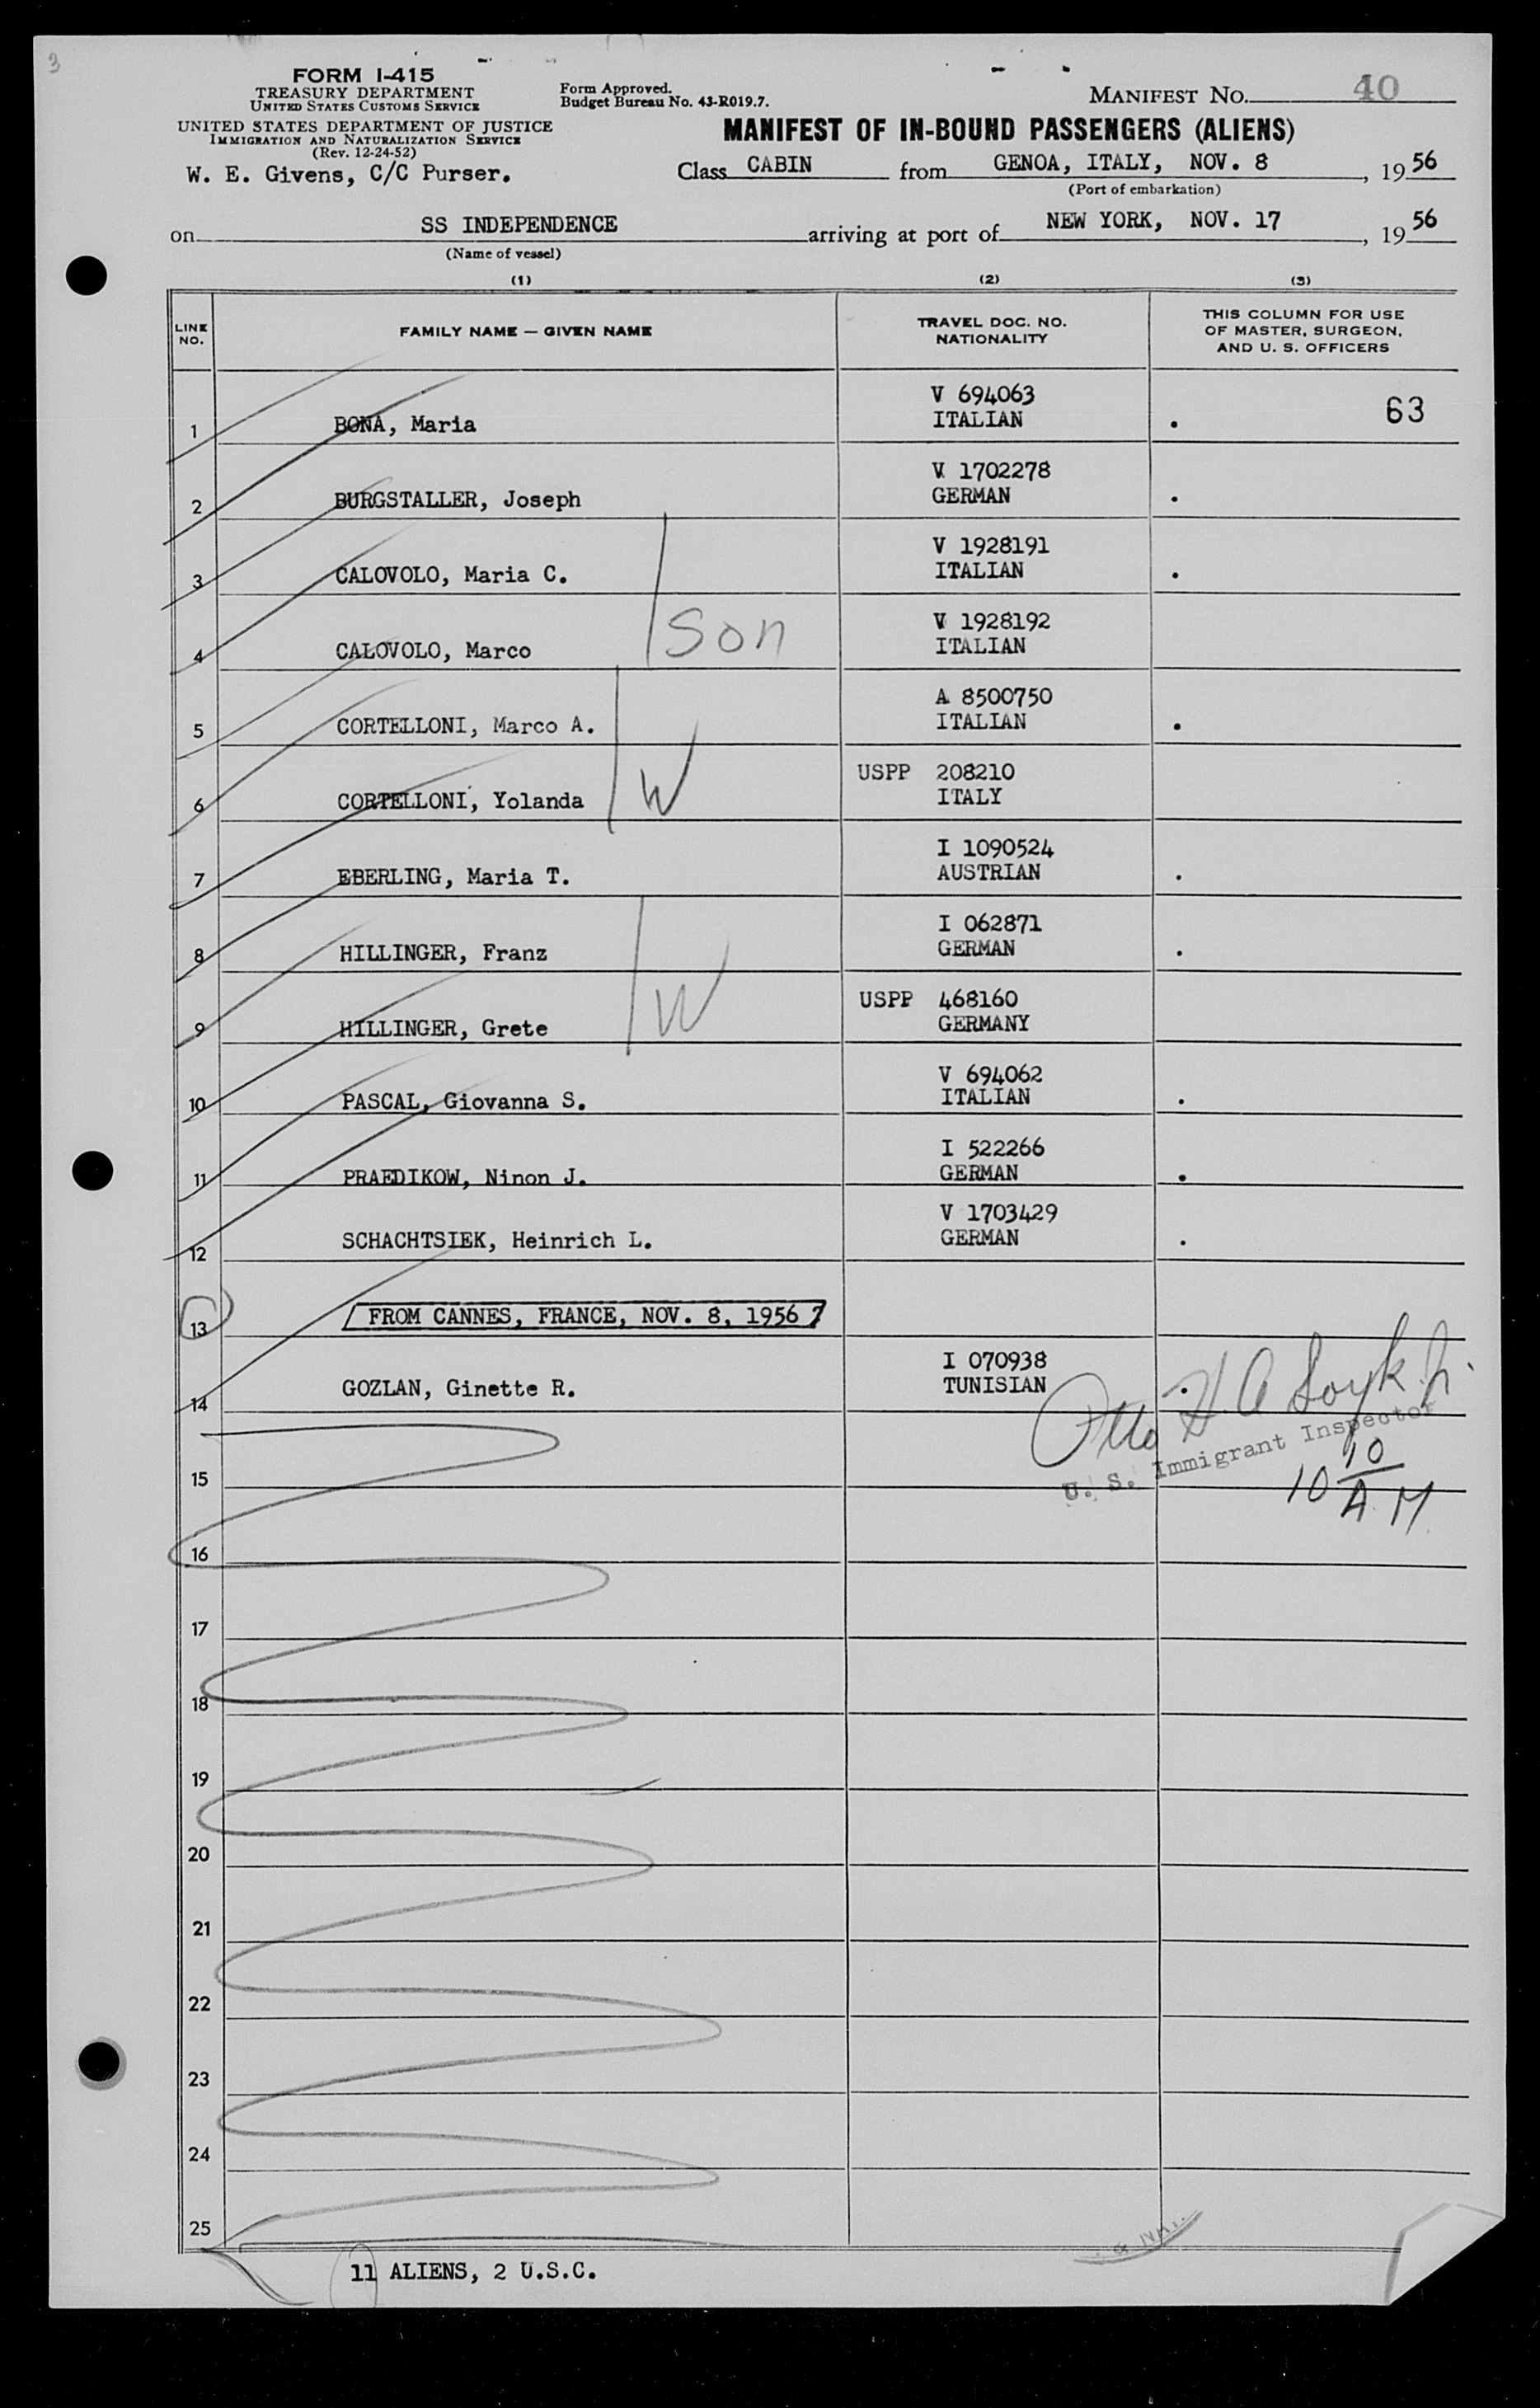 3
FORM I-415
TREASURY DEPARTMENT
UNITED STATES CUSTOMS SERVICE
UNITED STATES DEPARTMENT OF JUSTICE
IMMIGRATION AND NATURALIZATION SERVICE
(Rev. 12-24-52)
W. E. Givens, C/C Purser.
Form Approved.
Budget Bureau No. 43-R019.7.
MANIFEST NO. 40
MANIFEST OF IN-BOUND PASSENGERS (ALIENS)
Class CABIN from GENOA, ITALY, NOV. 8, 1956
(Port of embarkation)
on SS INDEPENDENCE arriving at port of NEW YORK, NOV. 17, 1956
(Name of vessel)
(1) (2) (3)
LINE NO. FAMILY NAME — GIVEN NAME TRAVEL DOC. NO. NATIONALITY THIS COLUMN FOR USE OF MASTER, SURGEON, AND U. S. OFFICERS
1 BONA, Maria V 694063 ITALIAN . 63
2 BURGSTALLER, Joseph V 1702278 GERMAN .
3 CALOVOLO, Maria C. V 1928191 ITALIAN .
4 CALOVOLO, Marco Son V 1928192 ITALIAN
5 CORTELLONI, Marco A. A 8500750 ITALIAN .
6 CORTELLONI, Yolanda W USPP 208210 ITALY
7 EBERLING, Maria T. I 1090524 AUSTRIAN .
8 HILLINGER, Franz I 062871 GERMAN .
9 HILLINGER, Grete W USPP 468160 GERMANY
10 PASCAL, Giovanna S. V 694062 ITALIAN .
11 PRAEDIKOW, Ninon J. I 522266 GERMAN .
12 SCHACHTSIEK, Heinrich L. V 1703429 GERMAN .
13 FROM CANNES, FRANCE, NOV. 8, 1956
14 GOZLAN, Ginette R. I 070938 TUNISIAN .
U. S. Immigrant Inspector
10 10 A.M
15
16
17
18
19
20
21
22
23
24
25
11 ALIENS, 2 U.S.C.